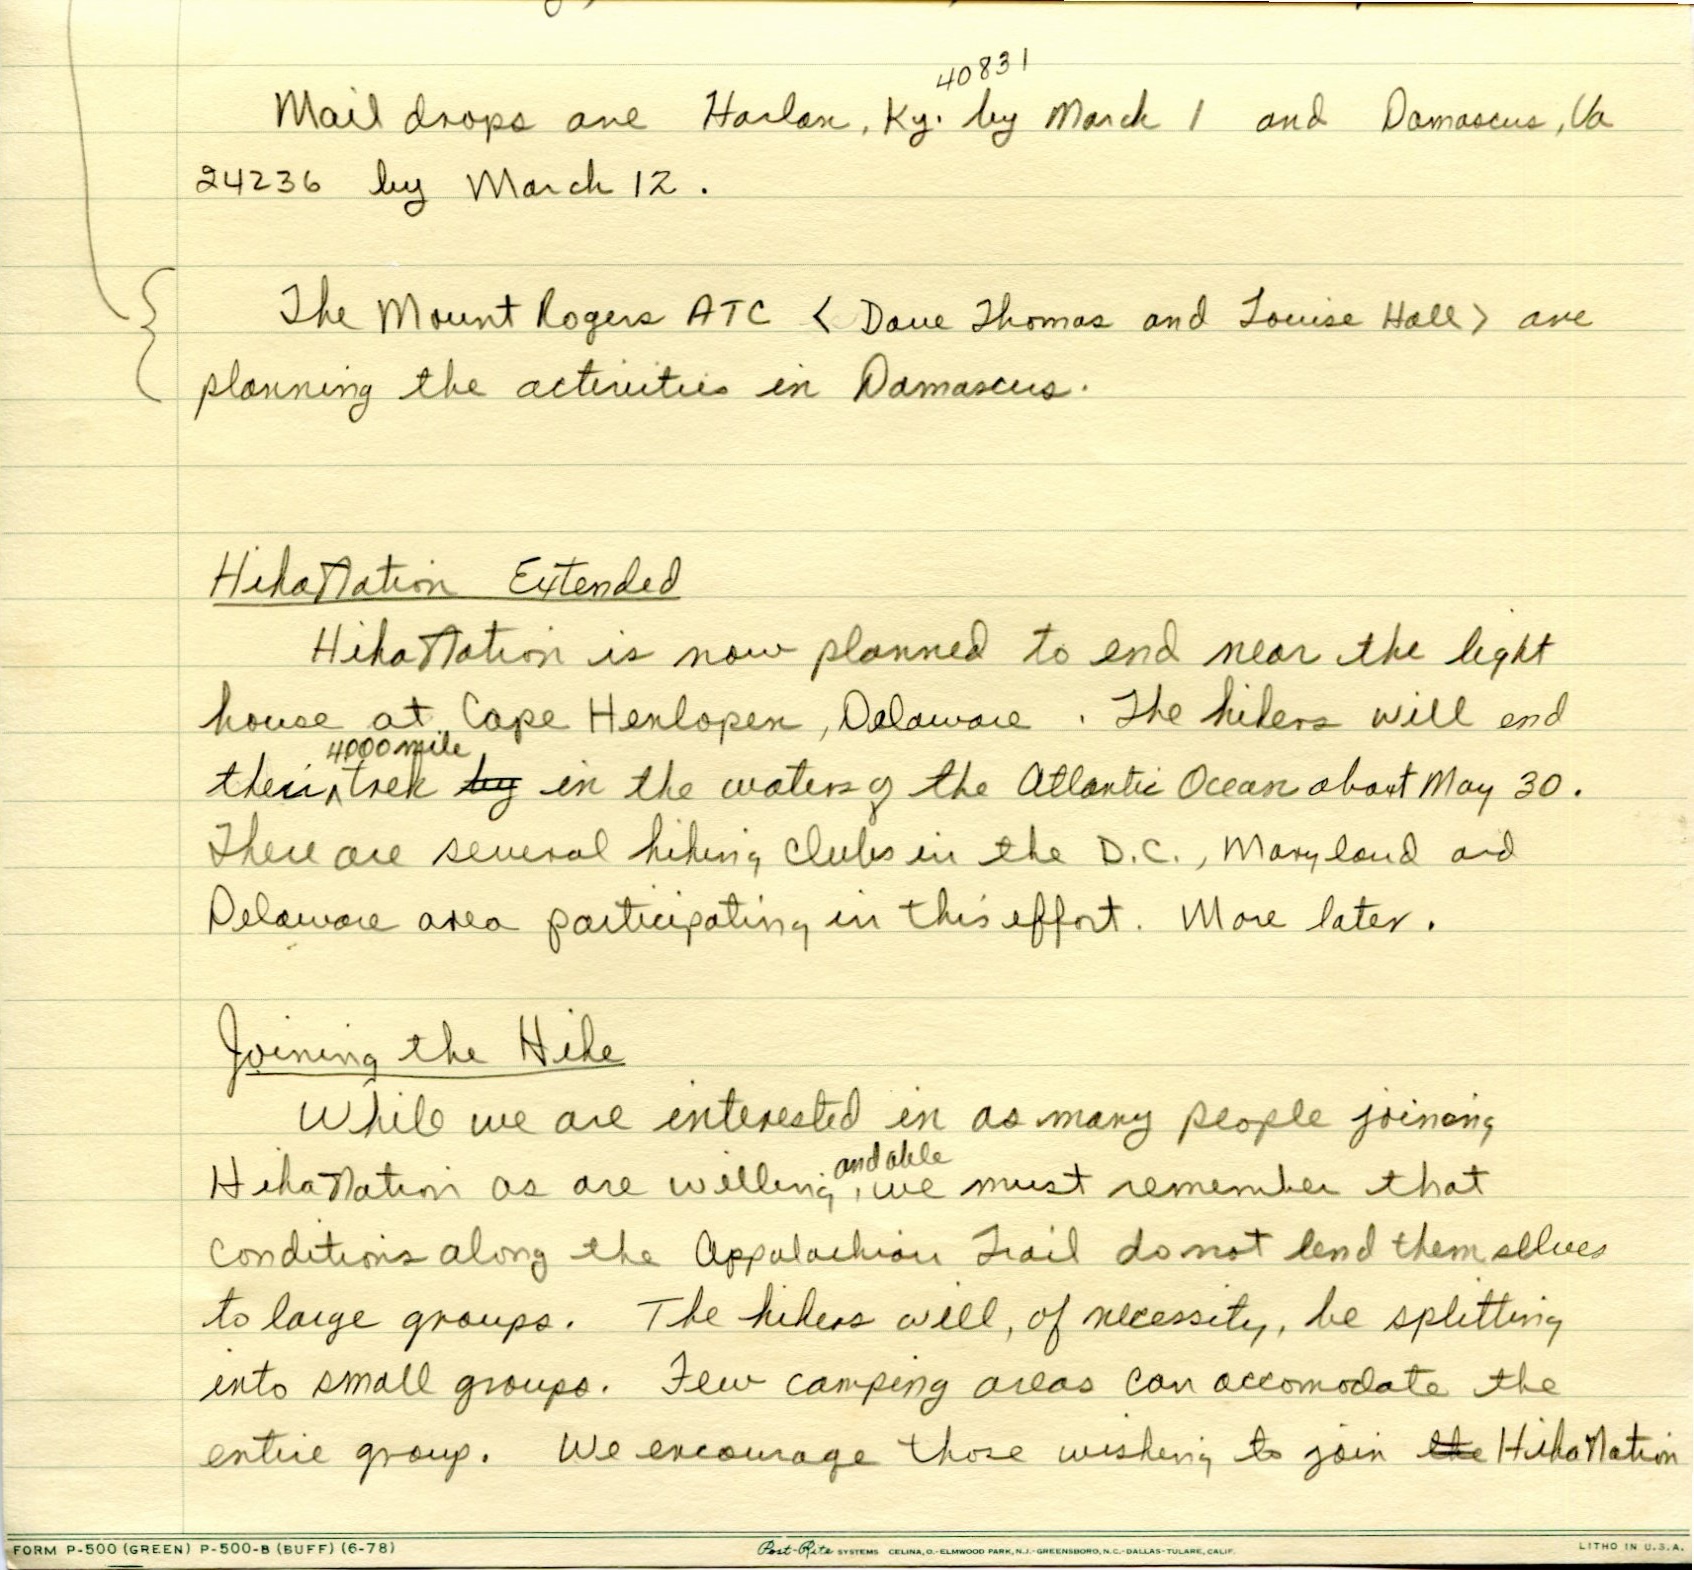 40831
Mail drops are Harlan, Ky. by March 1 and Damascus, Va
24236 by March 12.
The Mount Rogers ATC < Dave Thomas and Louise Hall > are
planning the activities in Damascus.
HikaNation Extended
HikaNation is now planned to end near the light
house at Cape Henlopen, Delaware . The hikers will end
4000 mile
their ^ trek by in the waters of the Atlantic Ocean about May 30.
There are several hiking clubs in the D.C., Maryland and
Delaware area participating in this effort. More later.
Joining the Hike
While we are interested in as many people joining
and able
HikaNation as are willing, we must remember that
conditions along the Appalachian Trail do not lend themselves
to large groups. The hikers will, of necessity, be splitting
into small groups. Few camping areas can accomodate the
entire group. We encourage those wishing to join the HikaNation
FORM P-500 (GREEN) P-500-B (BUFF) (6-78) Post-Rite SYSTEMS CELINA, O.-ELMWOOD PARK, N.J.-GREENSBORO, N.C.-DALLAS-TULARE, CALIF. LITHO IN U.S.A.